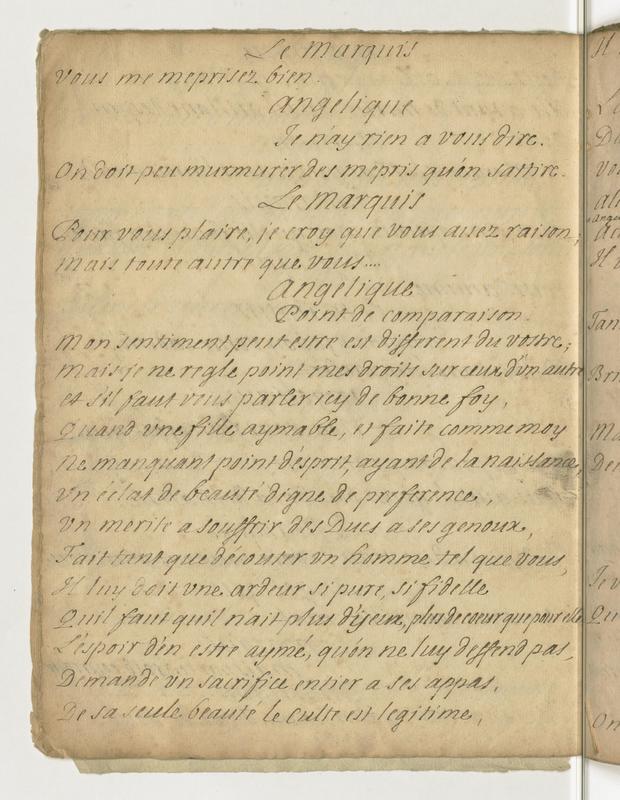 Le Marquis
vous me meprisez bien.
Angelique
Je n'ay rien a vous dire.
On doit peu murmurer des mepris qu'on s'attire.
Le Marquis
Pour vous plaire, je croy que vous avez raison;
Mais toute autre que vous....
Angelique
Point de comparaison.
Mon sentiment peut estre est different du vostre;
Mais je ne regle point mes droits sur ceux d'vn autre
et s'il faut vous parler icy de bonne foy,
Quand vne fille aymable, et faite comme moy
Ne manquant point d'esprit, ayant de la naissance,
vn éclat de beauté digne de preference,
vn merite a souffrir des Ducs a ses genoux,
Fait tant que d'écouter vn homme tel que vous,
Il luy doit vne ardeur si pure, si fidelle
Qu'il faut qu'il n'ait plus d'yeux, plus de coeur que pour elle
L'espoir d'en estre aymé, qu'on ne luy deffend pas,
Demande vn sacrifice entier a ses appas.
De sa seule beauté le culte est legitime,